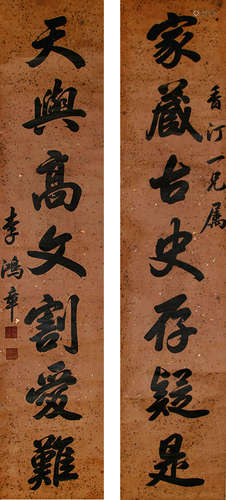 家藏古史存疑是
香汀一兄属
天與高文割愛難
李鴻章